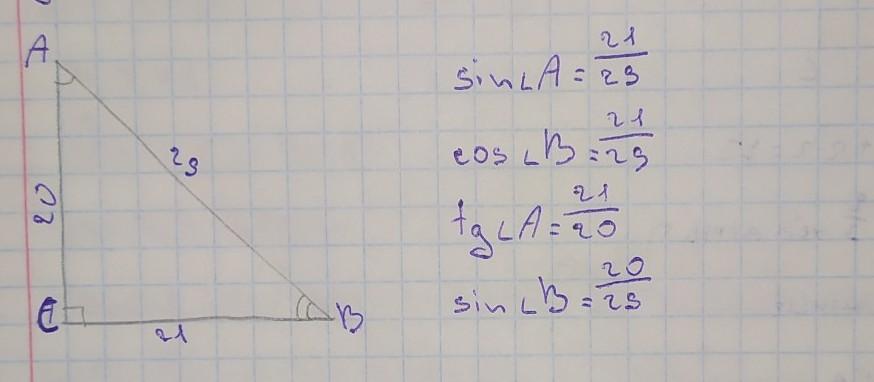 A
29
20
C
21
B
sin∠A = 21/29
cos∠B = 21/29
tg∠A = 21/20
sin∠B = 20/29